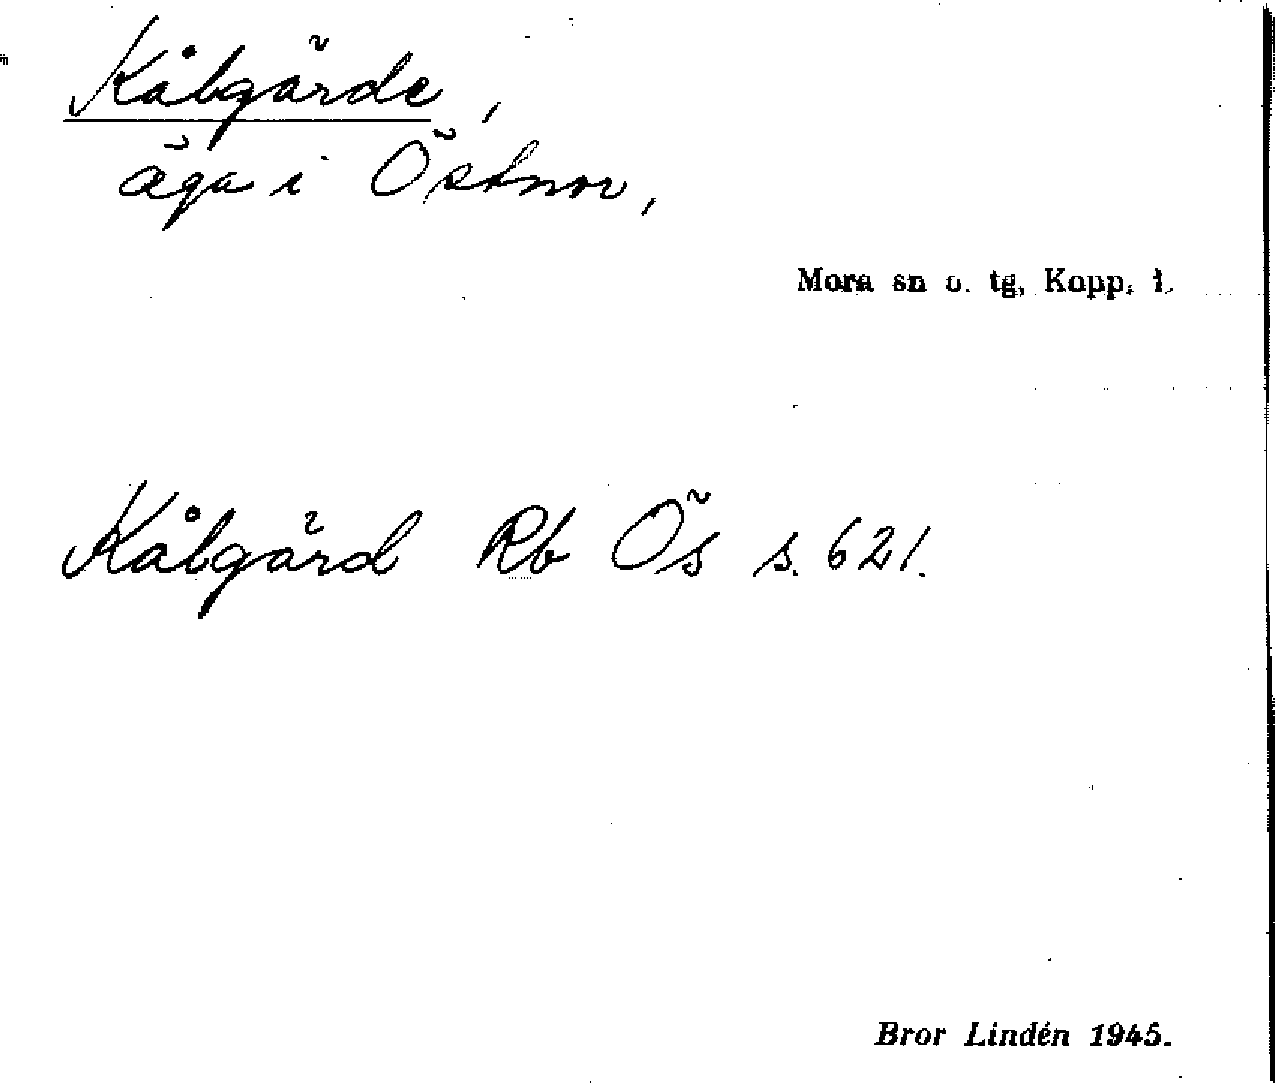 Kålgärde,
äga i Östnor,
Mora sn o. tg, Kopp. l.
Kålgärd Rb Ös s. 621.
Bror Lindén 1945.